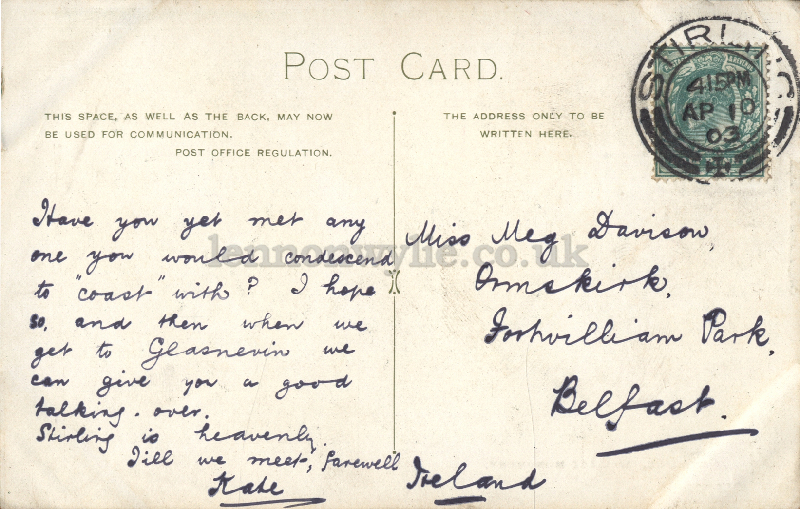 POST CARD.
THIS SPACE, AS WELL AS THE BACK, MAY NOW
BE USED FOR COMMUNICATION.
POST OFFICE REGULATION.
THE ADDRESS ONLY TO BE
WRITTEN HERE.
STIRLING
4.15PM
AP 10
03
Have you yet met any
one you would condescend
to "coast" with? I hope
so, and then when we
get to Glasnevin we
can give you a good
talking over.
Stirling is heavenly.
Till we meet, farewell
Kate
Miss Meg Davison,
Ormskirk,
Fortwilliam Park,
Belfast.
Ireland
lennonwylie.co.uk